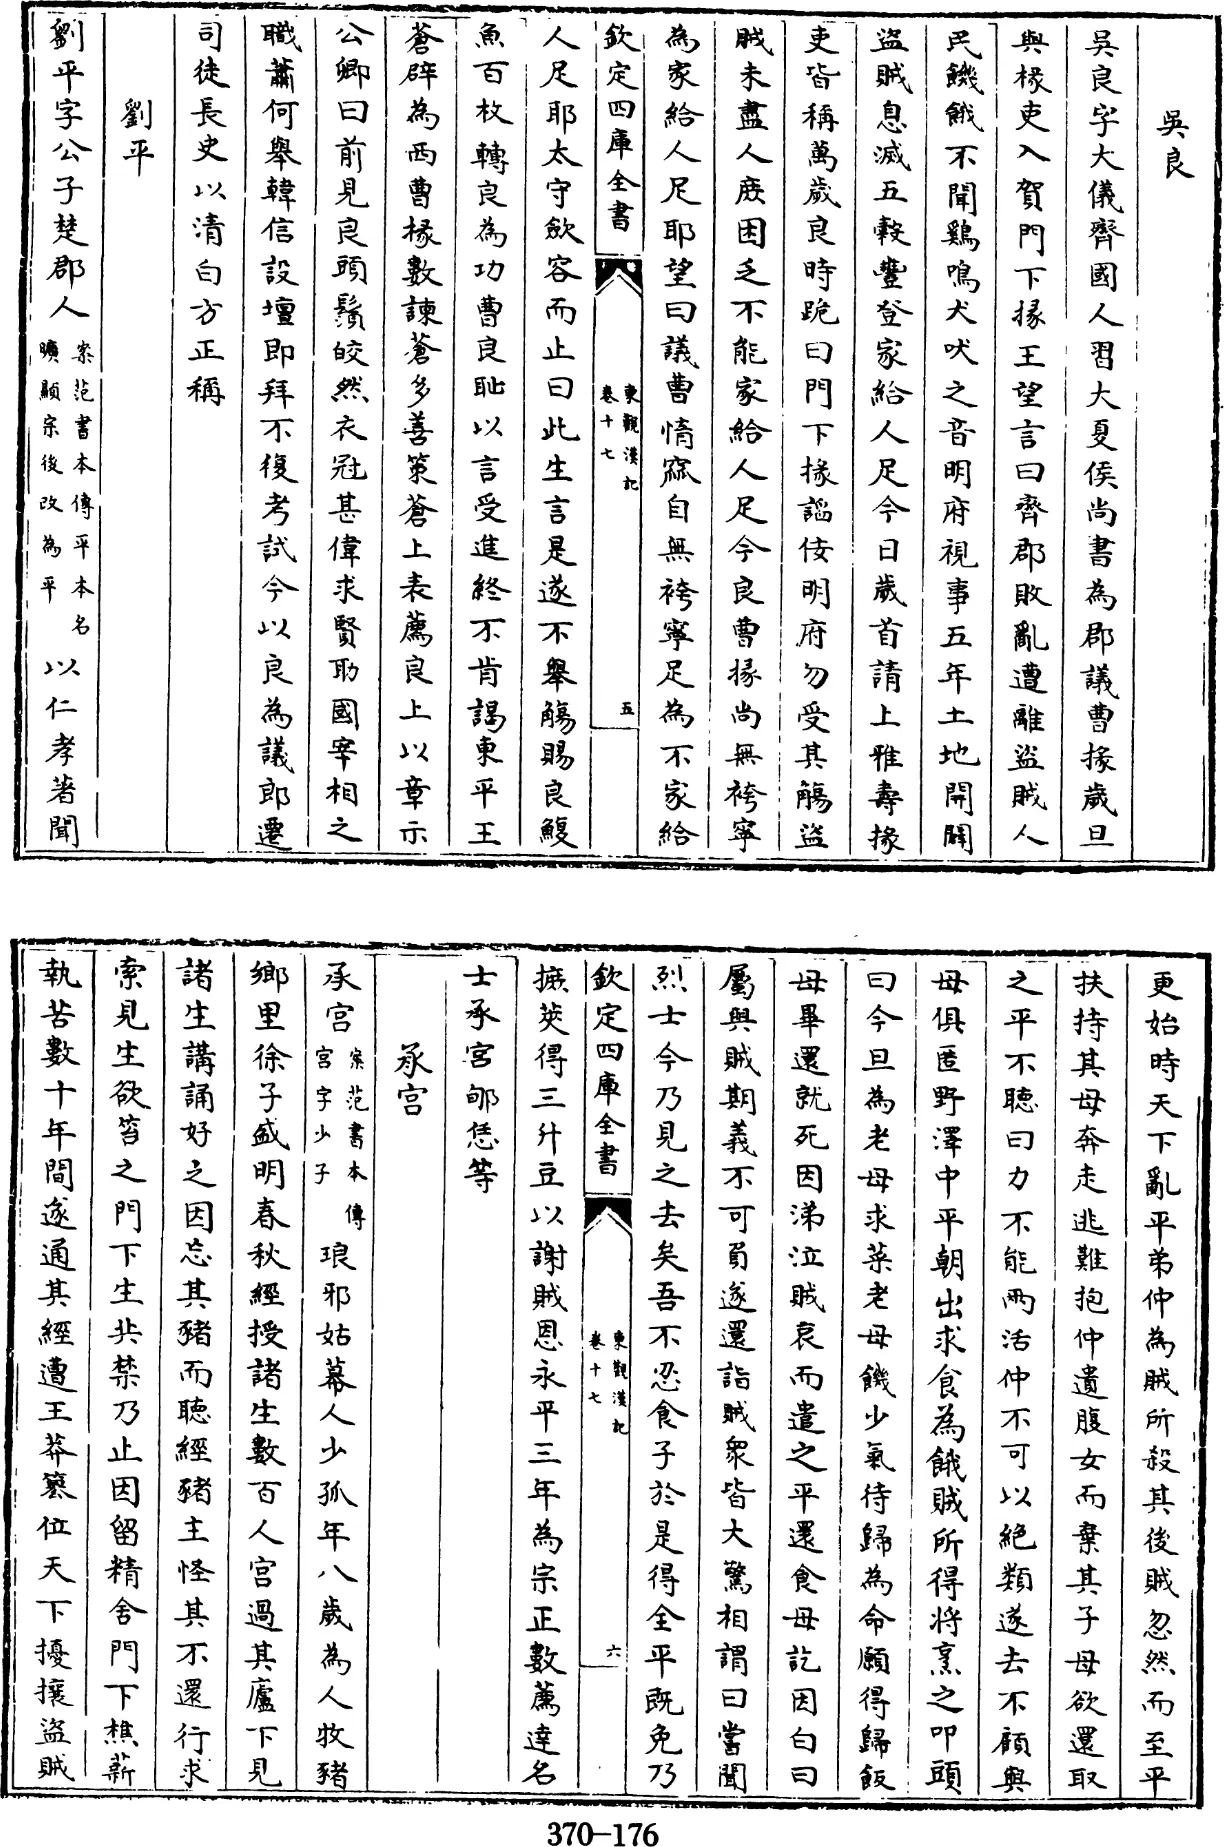 吳良
吳良字大儀齊國人習大夏侯尚書為郡議曹掾歲旦
與掾吏入賀門下掾王望言曰齊郡敗亂遭離盜賊人
民饑餓不聞鷄鳴犬吠之音明府視事五年土地開闢
盜賊息滅五穀豐登家給人足今日歲首請上雅壽掾
吏皆稱萬歲良時跪曰門下掾謟佞明府勿受其觴盜
賊未盡人庻困乏不能家給人足今良曹掾尚無袴寧
為家給人足耶望曰議曹惰窳自無袴寧足為不家給
欽定四庫全書
東觀漢記
卷十七
五
人足耶太守歛容而止曰此生言是遂不舉觴賜良鰒
魚百枚轉良為功曹良恥以言受進終不肯謁東平王
蒼辟為西曹掾數諫蒼多善策蒼上表薦良上以章示
公卿曰前見良頭鬚皎然衣冠甚偉求賢助國宰相之
職蕭何舉韓信設壇即拜不復考試今以良為議郎遷
司徒長史以清白方正稱
劉平
劉平字公子楚郡人案范書本傳平本名曠顯宗後改為平以仁孝著聞
更始時天下亂平弟仲為賊所殺其後賊忽然而至平
扶持其母奔走逃難抱仲遺腹女而棄其子母欲還取
之平不聽曰力不能兩活仲不可以絶類遂去不顧與
母俱匿野澤中平朝出求食為餓賊所得將烹之叩頭
曰今旦為老母求菜老母饑少氣待歸為命願得歸飯
母畢還就死因涕泣賊哀而遣之平還食母訖因白曰
屬與賊期義不可負遂還詣賊衆皆大驚相謂曰嘗聞
烈士今乃見之去矣吾不忍食子於是得全平既免乃
欽定四庫全書
東觀漢記
卷十七
六
摭莢得三升豆以謝賊恩永平三年為宗正數薦達名
士承宮郇恁等
承宫
承宫案范書本傳宫字少子琅邪姑幕人少孤年八歲為人牧豬
鄉里徐子盛明春秋經授諸生數百人宫過其廬下見
諸生講誦好之因忘其豬而聽經豬主怪其不還行求
索見生欲笞之門下生共禁乃止因留精舍門下樵薪
執苦數十年間遂通其經遭王莽簒位天下擾攘盜賊
370-176